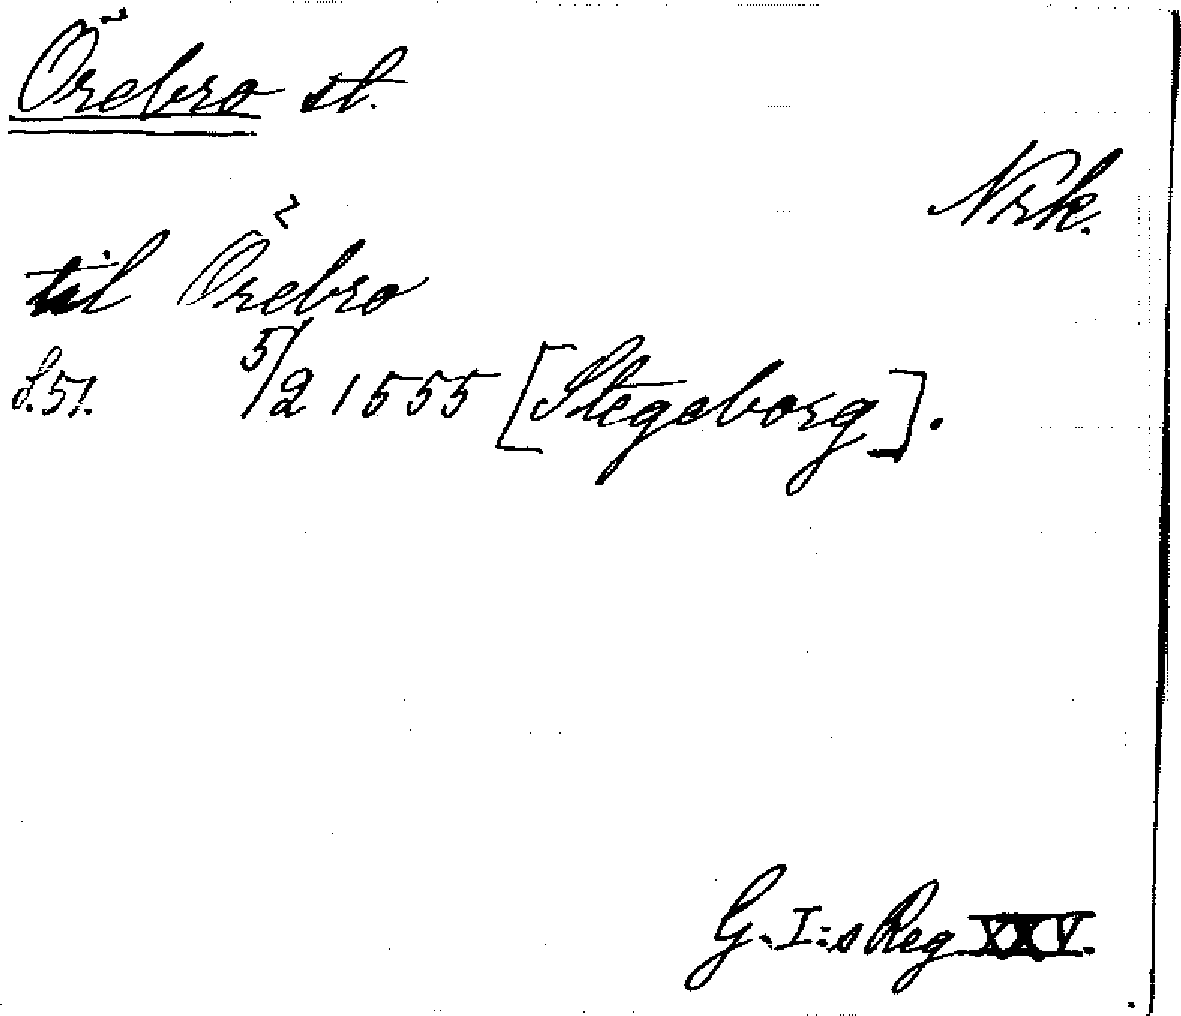 Örebro st.
Nrk.
til Örebro
S.51. 5/2 1555 [Stegeborg].
G. I:s Reg XXV.